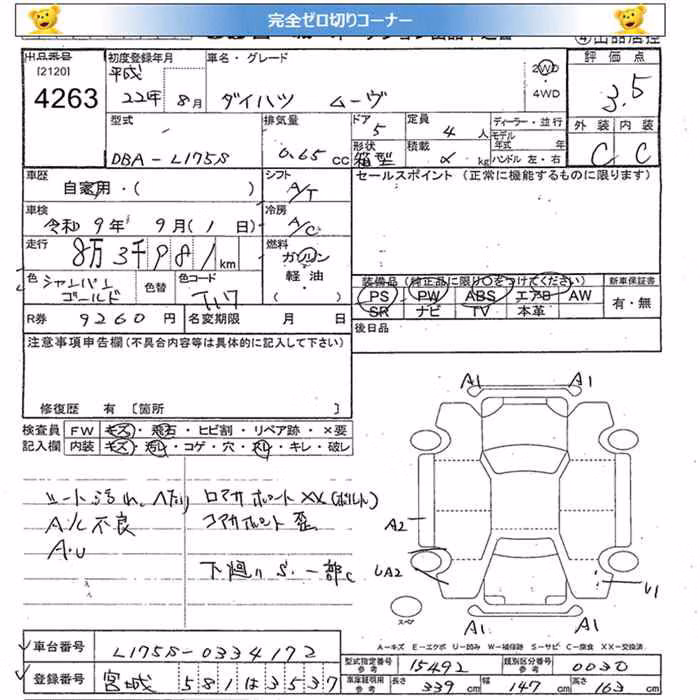 完全ゼロ切りコーナー
出品番号
[2120]
4263
初度登録年月
平成
22年 8月
車名・グレード
ダイハツ ムーヴ
2WD
4WD
評価点
3.5
型式
DBA-L175S
排気量
0.65 cc
ドア
5
形状
箱型
定員
4人
積載
kg
ディーラー・並行
モデル
年式 年
ハンドル 左・右
外装 内装
C C
車歴
自家用・( )
シフト
A/T
セールスポイント (正常に機能するものに限ります)
車検
令和9年 9月(1日)
冷房
A/C
走行
8万3千981km
燃料
ガソリン
軽油
( )
色
シャンパン
ゴールド
色替
色コード
T17
装備品 (純正品に限り○をつけてください)
新車保証書
PS PW ABS エアB AW
有・無
SR ナビ TV 本革
R券 9260円 名変期限 月 日
後日品
注意事項申告欄(不具合内容等は具体的に記入して下さい)
修復歴 有 [箇所 ]
検査員 FW キズ・飛石・ヒビ割・リペア跡・×要
記入欄 内装 キズ・汚れ・コゲ・穴・スレ・キレ・破レ
シート汚れ、ヘタリ
A/C不良
A・U
ロアサポート XX(ボルト)
コアサポート 歪
下廻りS・一部C
A1 A1
A2
UA2
U1
A1 A1
スペア
A-キズ E-エクボ U-凹み W-補修跡 S-サビ C-腐食 XX-交換済
車台番号 L175S-0334172
登録番号 宮城 581 は 3537
型式指定番号
参考
15492
類別区分番号
参考
0030
車庫証明用
参考
長さ 339cm 幅 147cm 高さ 163cm